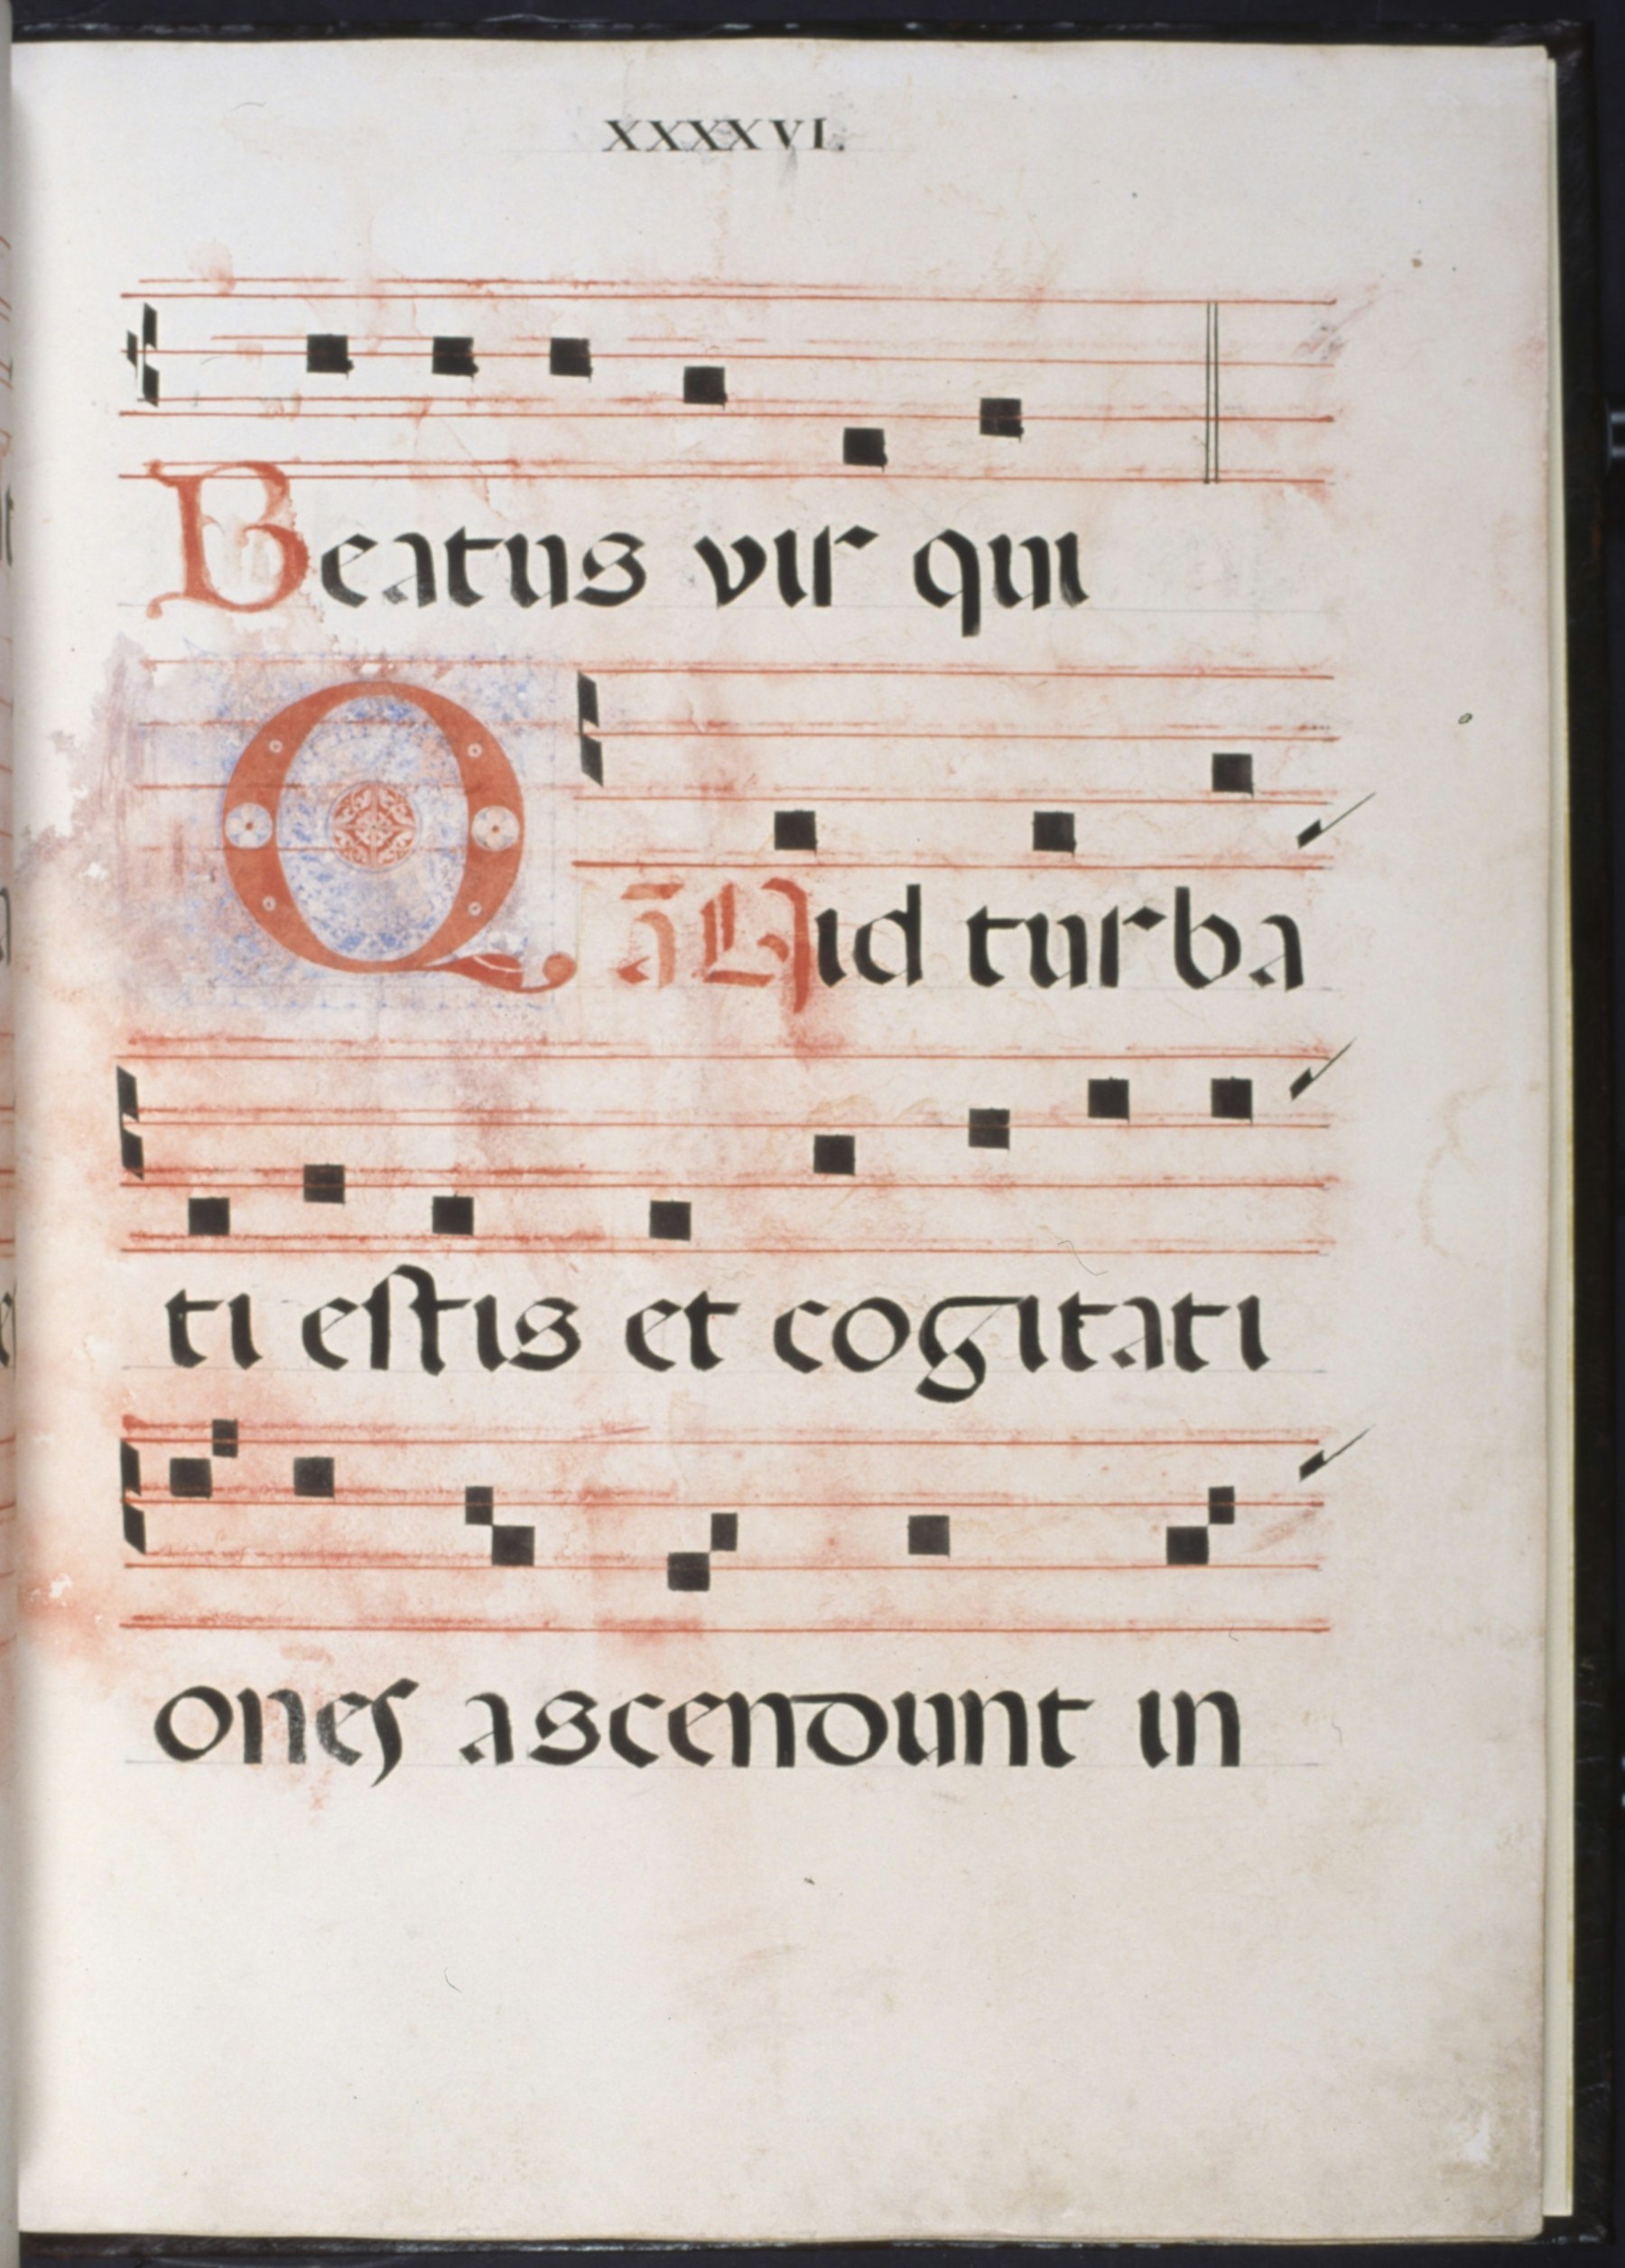 XXXXVI.
Beatus vir qui
Q ā Uid turba
ti estis et cogitati
ones ascendunt in